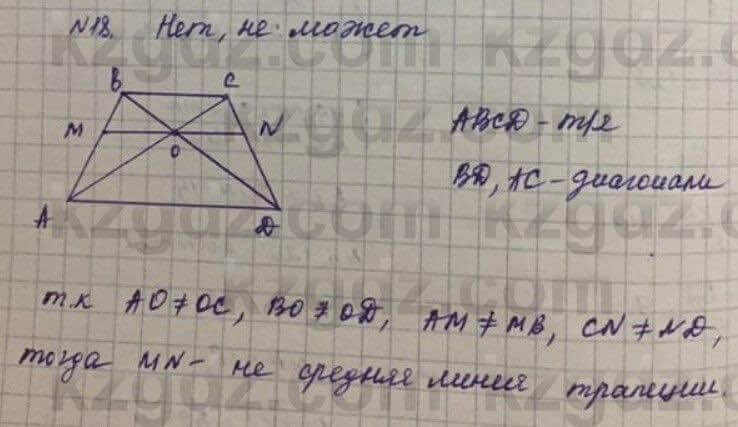 N18. Нет, не может
B C
M N
O
A D
ABCD - тр/г
BD, AC - диагонали
т.к AO ≠ OC, BO ≠ OD, AM ≠ MB, CN ≠ ND,
тогда MN - не средняя линия трапеции.
kzgdz.com kzgdz.com
kzgdz.com kzgdz.com
kzgdz.com kzgdz.com
kzgdz.com kzgdz.com